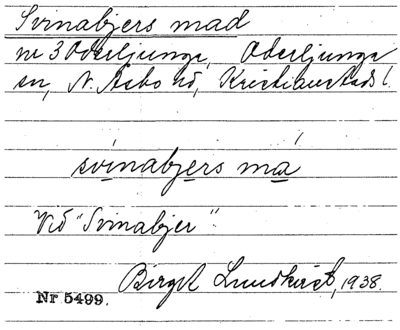 Svinabjers mad
nr 3 Oderljunga, Oderljunga
sn, N. Åsbo hd, Kristianstads l.
svinabjers má
Vid "Svinabjer".
Birgit Lundkvist, 1938.
Nr 5499.